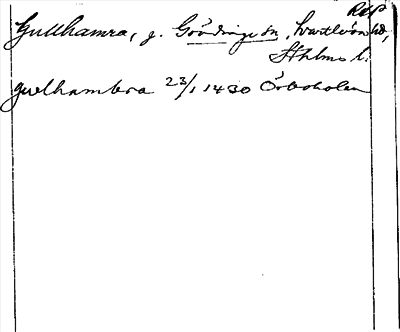 RAP
Gullhamra, g. Grödinge sn, Svartlösa hd,
Sthlms l.
gulhambra 23/1 1430 Örboholm